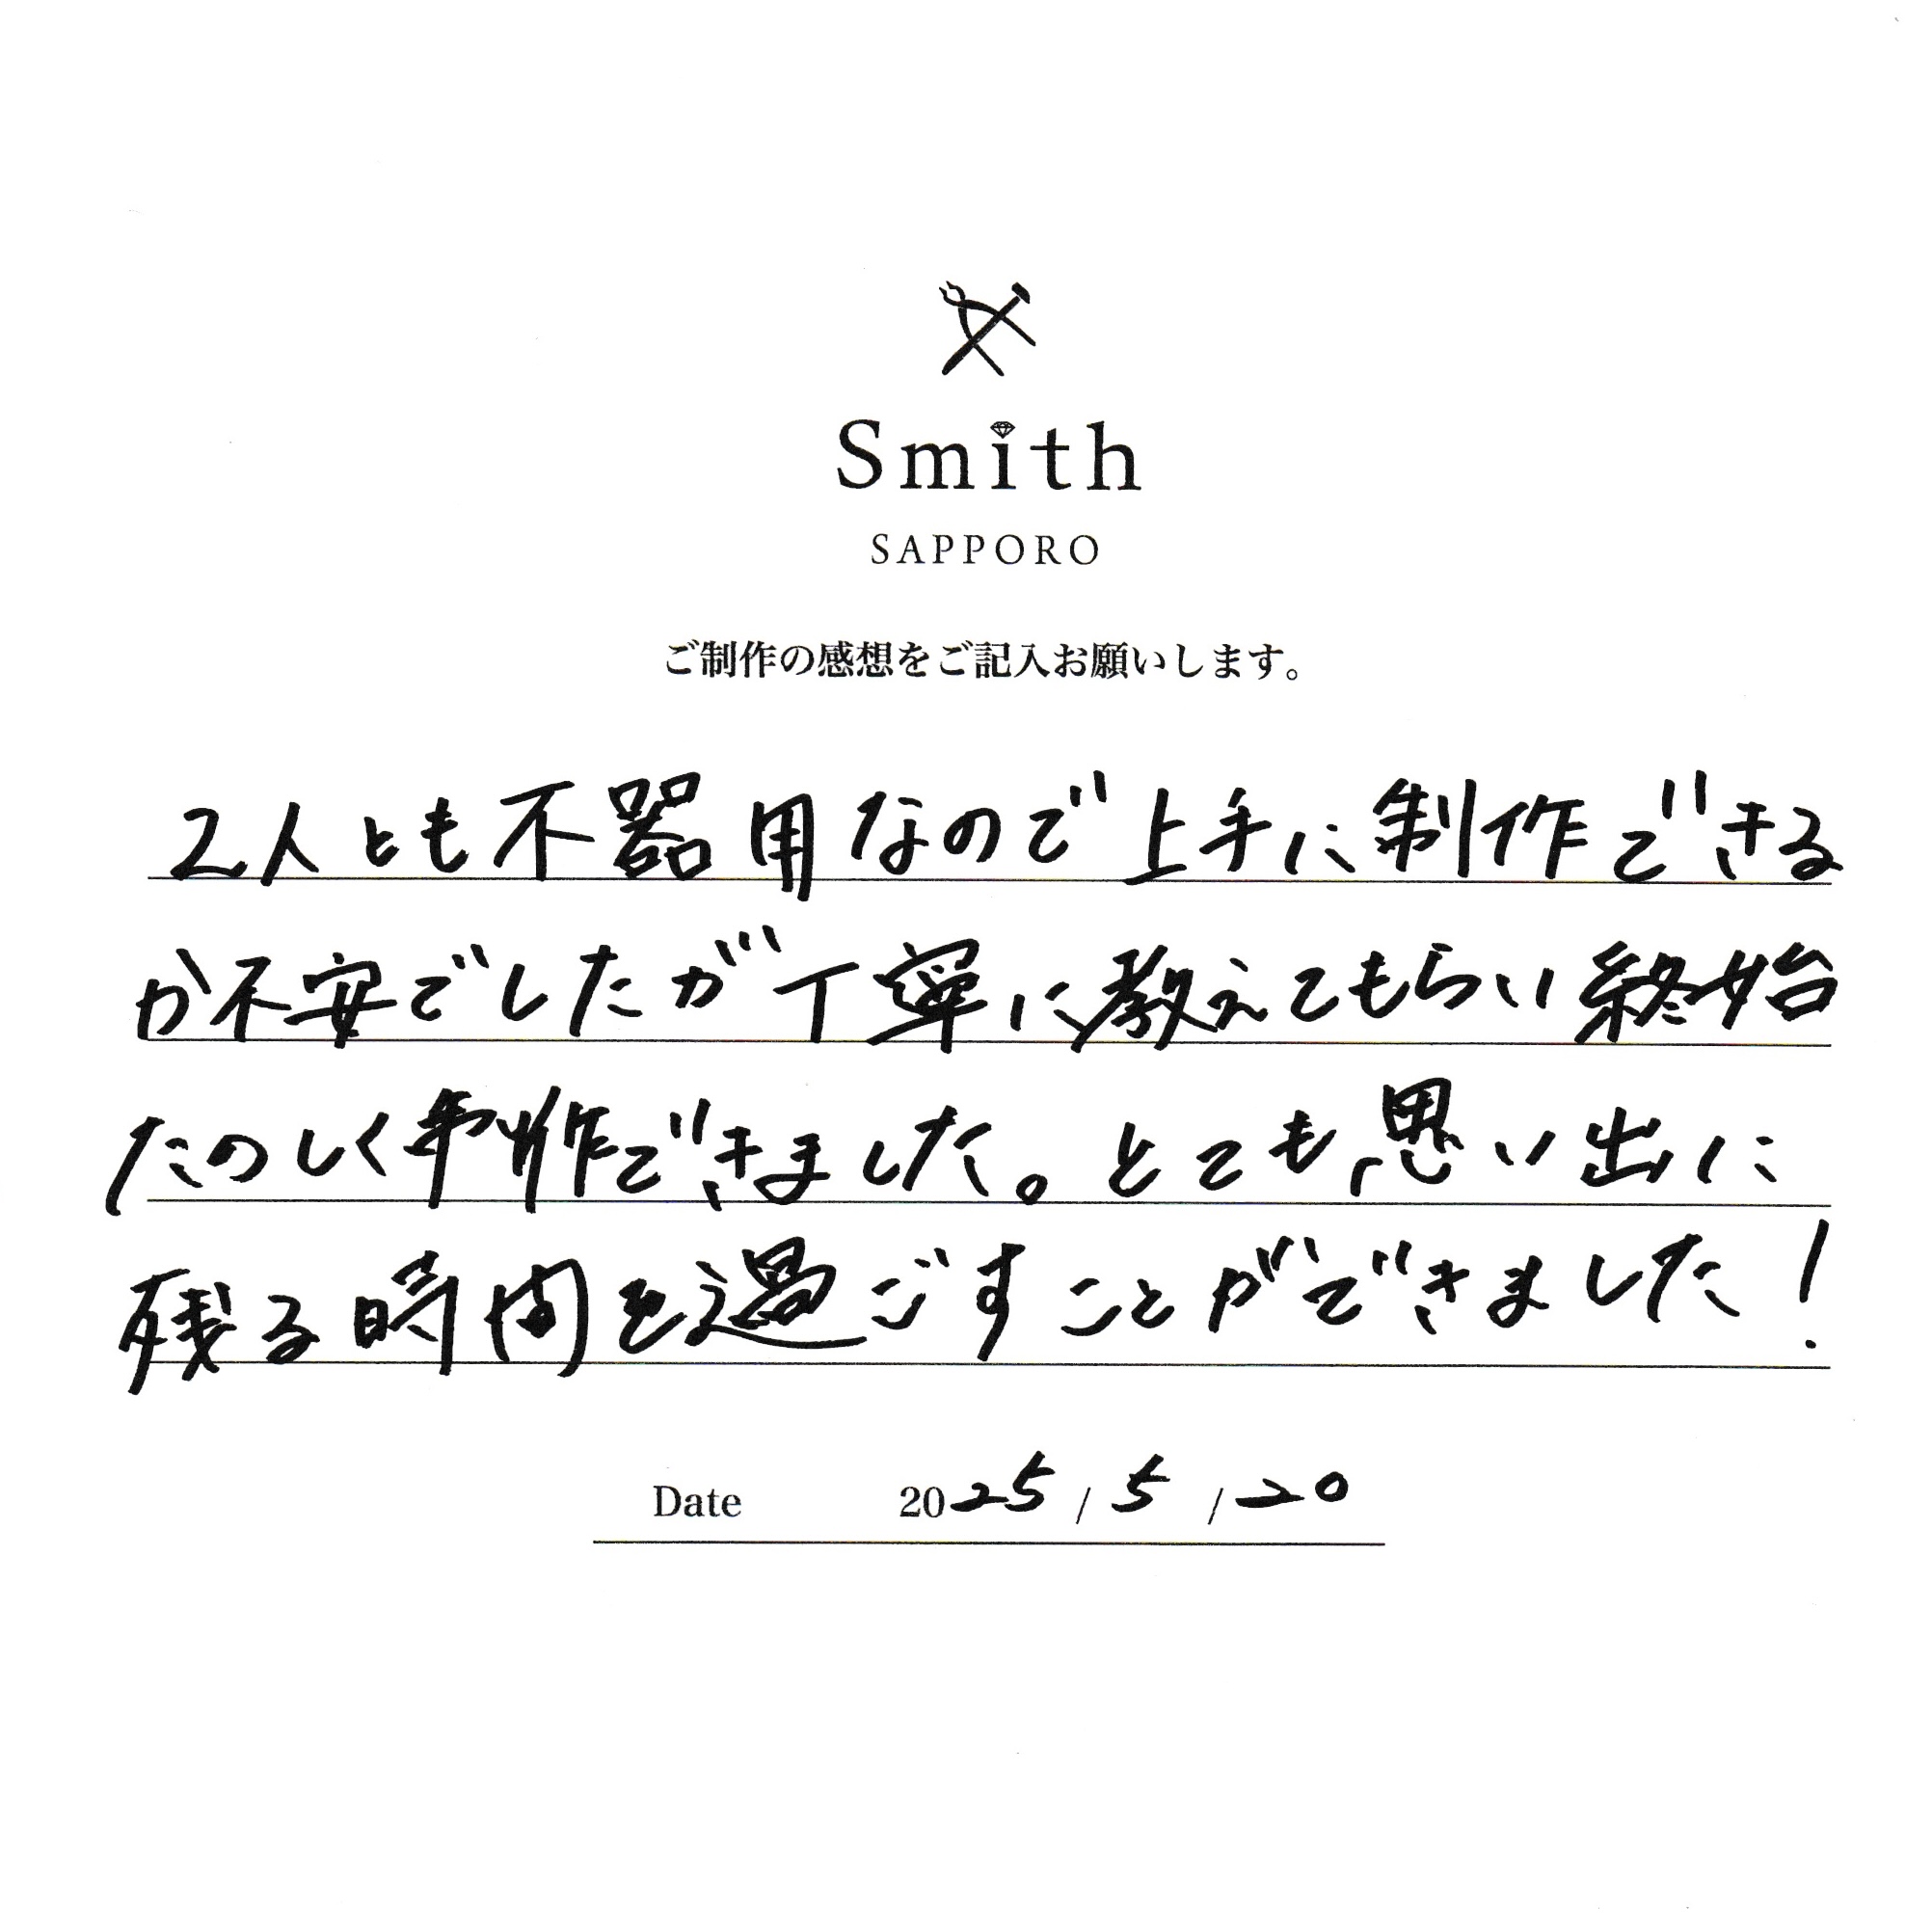 Smith
SAPPORO
ご制作の感想をご記入お願いします。
2人とも不器用なので上手に制作できる
か不安でしたが丁寧に教えてもらい終始
たのしく制作できました。とても思い出に
残る時間を過ごすことができました!
Date 2025/5/20